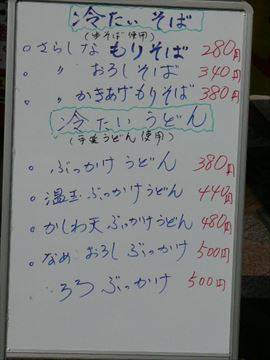 冷たいそば
(ゆそば使用)
○さらしなもりそば 280円
○〃おろしそば 340円
○〃かきあげもりそば 380円
冷たいうどん
(手延うどん使用)
○ぶっかけうどん 380円
○温玉ぶっかけうどん 440円
○かしわ天ぶっかけうどん 480円
○なめおろしぶっかけ 500円
ろろぶっかけ 500円